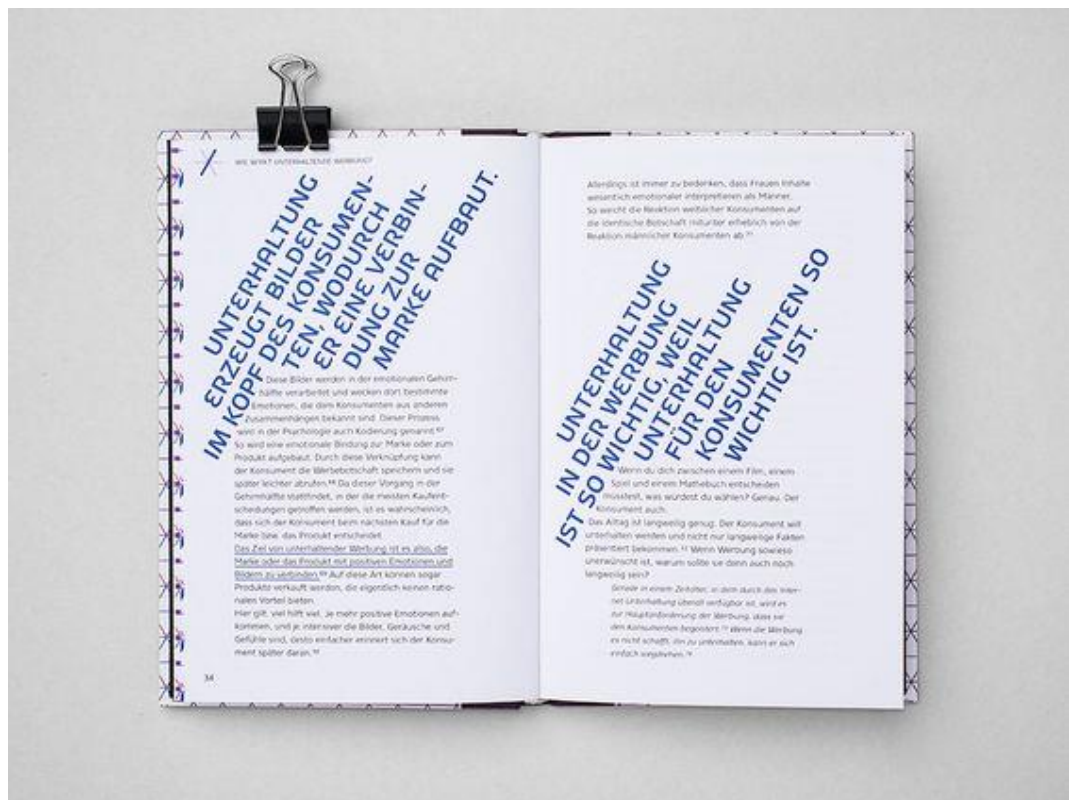 WIE WIRKT UNTERHALTENDE WERBUNG?
UNTERHALTUNG
ERZEUGT BILDER
IM KOPF DES KONSUMEN-
TEN, WODURCH
ER EINE VERBIN-
DUNG ZUR
MARKE AUFBAUT.
Diese Bilder werden in der emotionalen Gehirn-
hälfte verarbeitet und wecken dort bestimmte
Emotionen, die dem Konsumenten aus anderen
Zusammenhängen bekannt sind. Dieser Prozess
wird in der Psychologie auch Kodierung genannt.⁶⁷
So wird eine emotionale Bindung zur Marke oder zum
Produkt aufgebaut. Durch diese Verknüpfung kann
der Konsument die Werbebotschaft speichern und sie
später leichter abrufen.⁶⁸ Da dieser Vorgang in der
Gehirnhälfte stattfindet, in der die meisten Kaufent-
scheidungen getroffen werden, ist es wahrscheinlich,
dass sich der Konsument beim nächsten Kauf für die
Marke bzw. das Produkt entscheidet.
Das Ziel von unterhaltender Werbung ist es also, die
Marke oder das Produkt mit positiven Emotionen und
Bildern zu verbinden.⁶⁹ Auf diese Art können sogar
Produkte verkauft werden, die eigentlich keinen ratio-
nalen Vorteil bieten.
Hier gilt: viel hilft viel. Je mehr positive Emotionen auf-
kommen, und je intensiver die Bilder, Geräusche und
Gefühle sind, desto einfacher erinnert sich der Konsu-
ment später daran.⁷⁰
34
Allerdings ist immer zu bedenken, dass Frauen Inhalte
wesentlich emotionaler interpretieren als Männer.
So weicht die Reaktion weiblicher Konsumenten auf
die identische Botschaft mitunter erheblich von der
Reaktion männlicher Konsumenten ab.⁷¹
UNTERHALTUNG
IN DER WERBUNG
IST SO WICHTIG, WEIL
UNTERHALTUNG
FÜR DEN
KONSUMENTEN SO
WICHTIG IST.
Wenn du dich zwischen einem Film, einem
Spiel und einem Mathebuch entscheiden
müsstest, was würdest du wählen? Genau. Der
Konsument auch.
Das Alltag ist langweilig genug. Der Konsument will
unterhalten werden und nicht nur langweilige Fakten
präsentiert bekommen.⁷² Wenn Werbung sowieso
unerwünscht ist, warum sollte sie dann auch noch
langweilig sein?
Gerade in einem Zeitalter, in dem durch das Inter-
net Unterhaltung überall verfügbar ist, wird es
zur Hauptanforderung der Werbung, dass sie
den Konsumenten begeistert.⁷³ Wenn die Werbung
es nicht schafft, ihn zu unterhalten, kann er sich
einfach wegdrehen.⁷⁴